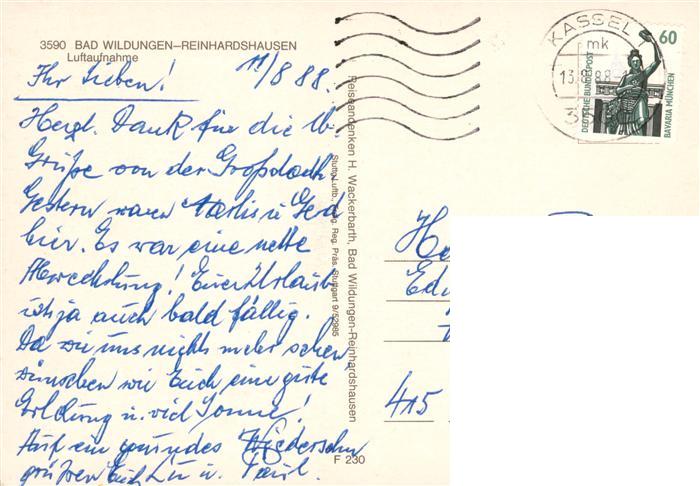 3590 BAD WILDUNGEN–REINHARDSHAUSEN
Luftaufnahme
11/8 88.
Ihr Lieben!
Herzl. Dank für die lb.
Grüße von der Großdadt
Gestern waren Marlis u Gerd
hier. Es war eine nette
Abwechslung! Euer Urlaub
ist ja auch bald fällig.
Da wir uns nicht mehr sehen
wünschen wir Euch eine gute
Erholung u. viel Sonne!
Auf ein gesundes Wiedersehn
grüßen Euch Lu u. Paul.
Reiseandenken H. Wackerbarth, Bad Wildungen-Reinhardshausen
Reg. Präs. Stuttgart 9/52985
F 230
KASSEL
mk
13.8.88
35
60
DEUTSCHE BUNDESPOST
BAVARIA MÜNCHEN
He
Edu
415